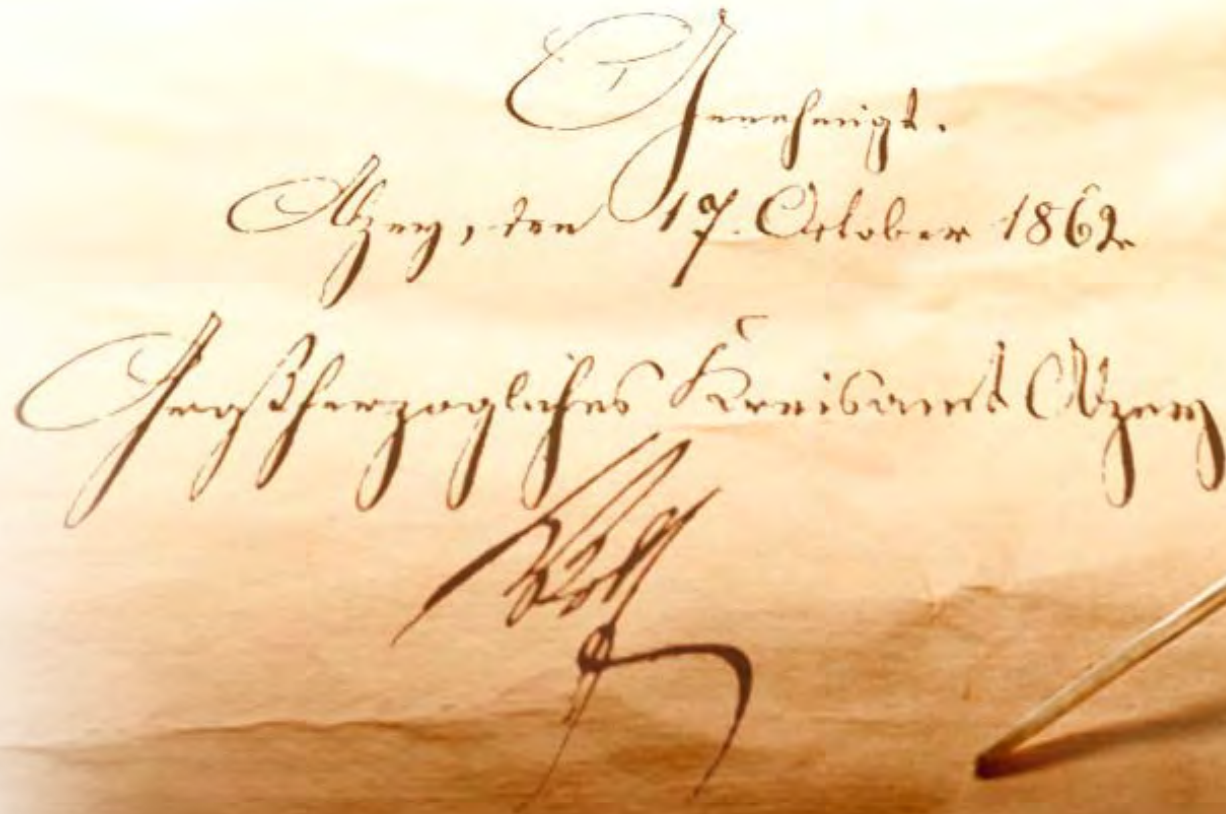 Genehmigt.
Alzey, den 17. October 1862
Großherzogliches Kreisamt Alzey